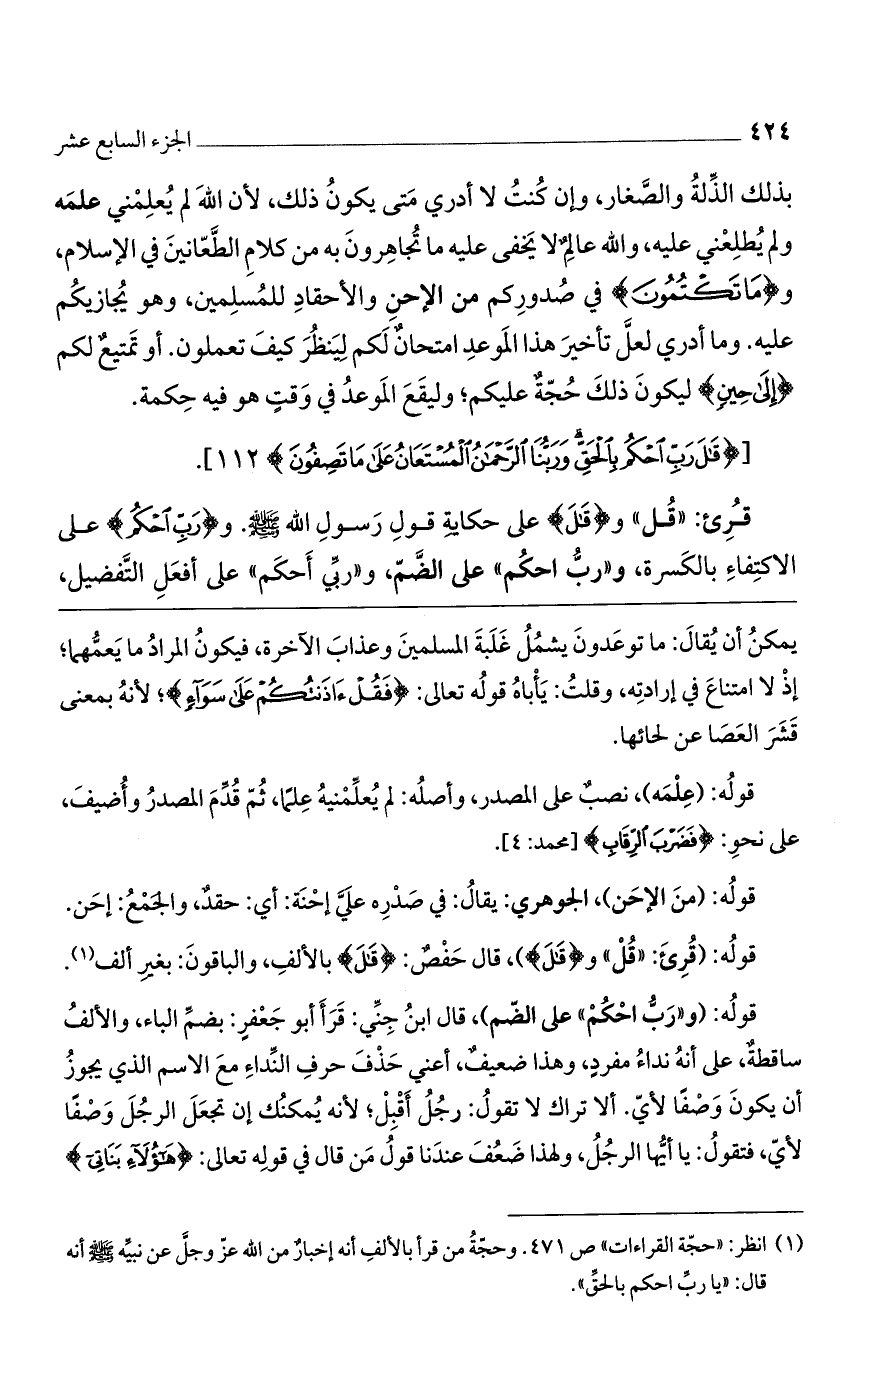 ٤٢٤ الجزء السابع عشر
بذلك الذِّلةُ والصَّغار، وإن كُنتُ لا أدري مَتى يكونُ ذلك، لأن اللهَ لم يُعلِمْني علمَه
ولم يُطلِعْني عليه، والله عالِمٌ لا يَخفى عليه ما تُجاهِرونَ به من كلامِ الطَّعّانينَ في الإسلام،
و﴿مَا تَكْتُمُونَ﴾ في صُدورِكم من الإحنِ والأحقادِ للمُسلِمين، وهو يُجازيكُم
عليه. وما أدري لعلَّ تأخيرَ هذا المَوعدِ امتحانٌ لَكم لِيَنظُرَ كيفَ تعملون. أو تمَتيعٌ لكم
﴿إِلَىٰ حِينٍ﴾ ليكونَ ذلكَ حُجّةً عليكم؛ وليقَعَ المَوعدُ في وَقتٍ هو فيه حِكمة.
[﴿قَٰلَ رَبِّ ٱحْكُم بِٱلْحَقِّ ۗ وَرَبُّنَا ٱلرَّحْمَٰنُ ٱلْمُسْتَعَانُ عَلَىٰ مَا تَصِفُونَ﴾ ١١٢].
قُرِئ: «قُل» و﴿قَٰلَ﴾ على حكايةِ قولِ رَسولِ الله ﷺ. و﴿رَبِّ ٱحْكُم﴾ على
الاكتِفاءِ بالكَسرة، و«ربُّ احكُم» على الضَّمّ، و«ربِّي أَحكَم» على أفعَلِ التَّفضيل،
يمكنُ أن يُقالَ: ما توعَدونَ يشمُلُ غَلَبةَ المسلمينَ وعذابَ الآخرة، فيكونُ المرادُ ما يَعمُّهما؛
إذْ لا امتناعَ في إرادتِه، وقلتُ: يَأْباهُ قولُه تعالى: ﴿فَقُلْ ءَاذَنتُكُمْ عَلَىٰ سَوَآءٍ﴾؛ لأنهُ بمعنى
قَشَرَ العَصَا عن لحائها.
قولُه: (عِلْمَه)، نصبٌ على المصدر، وأصلُه: لم يُعلِّمْنيهُ عِلمًا، ثُمّ قُدِّمَ المصدرُ وأُضيفَ،
على نحوِ: ﴿فَضَرْبَ ٱلرِّقَابِ﴾ [محمد: ٤].
قولُه: (منَ الإحَن)، الجوهري: يقالُ: في صَدْرِه عليَّ إحْنَة: أي: حقدٌ، والجَمْعُ: إحَن.
قولُه: (قُرِئَ: «قُلْ» و﴿قَٰلَ﴾)، قال حَفْصٌ: ﴿قَٰلَ﴾ بالألفِ، والباقونَ: بغيرِ ألف(١).
قولُه: (و«رَبُّ احْكُمْ» على الضّم)، قال ابنُ جِنِّي: قَرَأَ أبو جَعْفرٍ: بضمِّ الباء، والألفُ
ساقطةٌ، على أنهُ نداءُ مفردٍ، وهذا ضعيفٌ، أعني حَذْفَ حرفِ النِّداءِ معَ الاسم الذي يجوزُ
أن يكونَ وَصْفًا لأيّ. ألا تراك لا تقولُ: رجلُ أَقْبِلْ؛ لأنه يُمكنُك إن تجعَلَ الرجُلَ وَصْفًا
لأيّ، فتقولُ: يا أيُّها الرجلُ، ولهذا ضَعُفَ عندَنا قولُ مَن قال في قولِه تعالى: ﴿هَٰٓؤُلَآءِ بَنَاتِىٓ﴾
(١) انظر: «حجّة القراءات» ص ٤٧١. وحجّةُ من قرأ بالألفِ أنه إخبارٌ من الله عزّ وجلَّ عن نبيِّه ﷺ أنه
قال: «يا ربِّ احكم بالحقِّ».